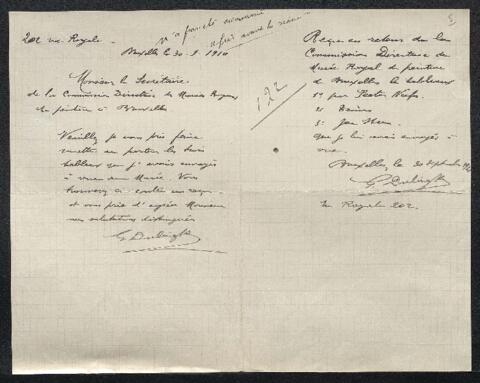 202 rue Royale
Bruxelles le 30-9-1910
Monsieur le Secrétaire
de la Commission Directrice des Musées Royaux
de peinture à Bruxelles
Veuillez je vous prie faire
remettre au porteur les trois
tableaux que j'avais envoyés
à vue au Musée. Vous
trouverez ci contre un reçu
et vous prie d'agréer Monsieur
mes salutations distinguées
122
5
Reçu en retour de la
Commission Directrice du
Musée Royal de peinture
de Bruxelles les tableaux
1° par Peeter Neefs
2°
3° Jan
que je lui avais envoyés à
vue.
Bruxelles le 30 septembre
rue Royale 202